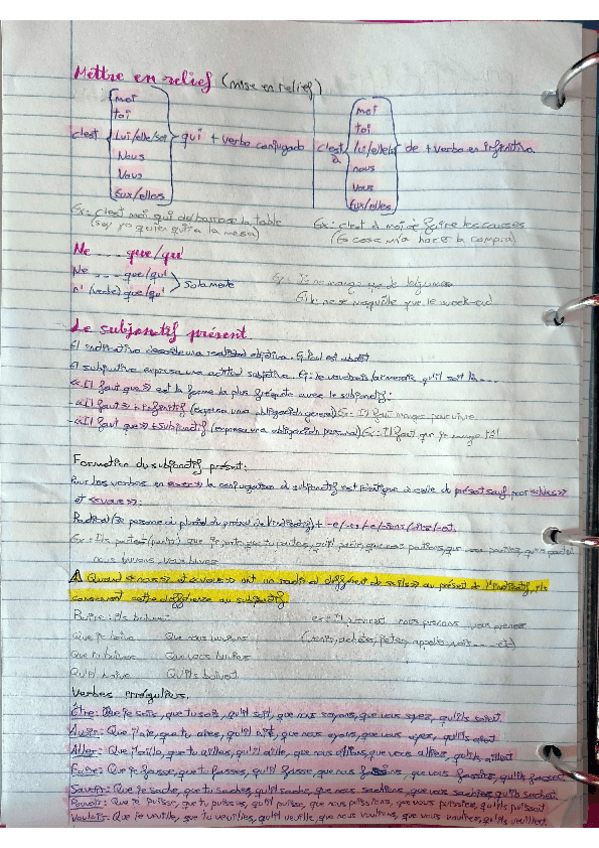 Mettre en relief (mise en relief)
c'est moi toi lui/elle/soi Nous Vous Eux/elles qui + verbe conjugado
c'est à moi toi lui/elle/soi nous vous Eux/elles de + verbo en infinitivo
Ex: c'est moi qui débarrase la table
(soy yo quien quita la mesa)
Ex: c'est à moi de faire les courses
(Es cosa mía hacer la compra)
Ne ... que/qu'
Ne ... que/qu'
n' (verbe) que/qu'
Solamente
Ex: Je ne mange que de légumes
ne se maquille que le week-end
Le subjonctif présent
El indicativo describe una realidad objetiva. Ej: Paul est
El subjuntivo expresa una actitud subjetiva. Ej: Je voudrais qu'il soit là...
«Il faut que» est la forme la plus fréquente avec le subjonctif:
«Il faut» + infinitif (expresa una obligación general) Ex: Il faut manger pour vivre
«Il faut que» + subjonctif (expresa una obligación personal) Ex: Il faut que je mange
Formation du subjonctif présent:
Pour les verbes en la conjugaison du subjonctif est identique à celle du présent sauf pour «Nous»
et «vous»:
Radical (3e personne du pluriel du présent de l'indicatif) + -e/-es/-e/-ions/-iez/-ent.
Ex: Ils partent (partir) que je parte, que tu partes, qu'il parte, que nous partions, que vous partiez, qu'ils partent
⚠ Quand «nous» et «vous» ont un radical différent de «ils» au présent de l'indicatif, ils
conservent cette différence au subjonctif.
Boire: ils boivent
nous prenons vous prenez
Que je boive Que nous buvions
Que tu boives Que vous buviez
Qu'il boive Qu'ils boivent
Verbes irréguliers.
Être: Que je sois, que tu sois, qu'il soit, que nous soyons, que vous soyez, qu'ils soient
Avoir: Que j'aie, que tu aies, qu'il ait, que nous ayons, que vous ayez, qu'ils aient
Aller: Que j'aille, que tu ailles, qu'il aille, que nous allions, que vous alliez, qu'ils aillent
Faire: Que je fasse, que tu fasses, qu'il fasse, que nous que vous fassiez, qu'ils fassent
Savoir: Que je sache, que tu saches, qu'il sache, que nous sachions, que vous sachiez, qu'ils sachent
Pouvoir: Que je puisse, que tu puisses, qu'il puisse, que nous puissions, que vous puissiez, qu'ils puissent
Vouloir: Que je veuille, que tu veuilles, qu'il veuille, que nous voulions, que vous vouliez, qu'ils veuillent